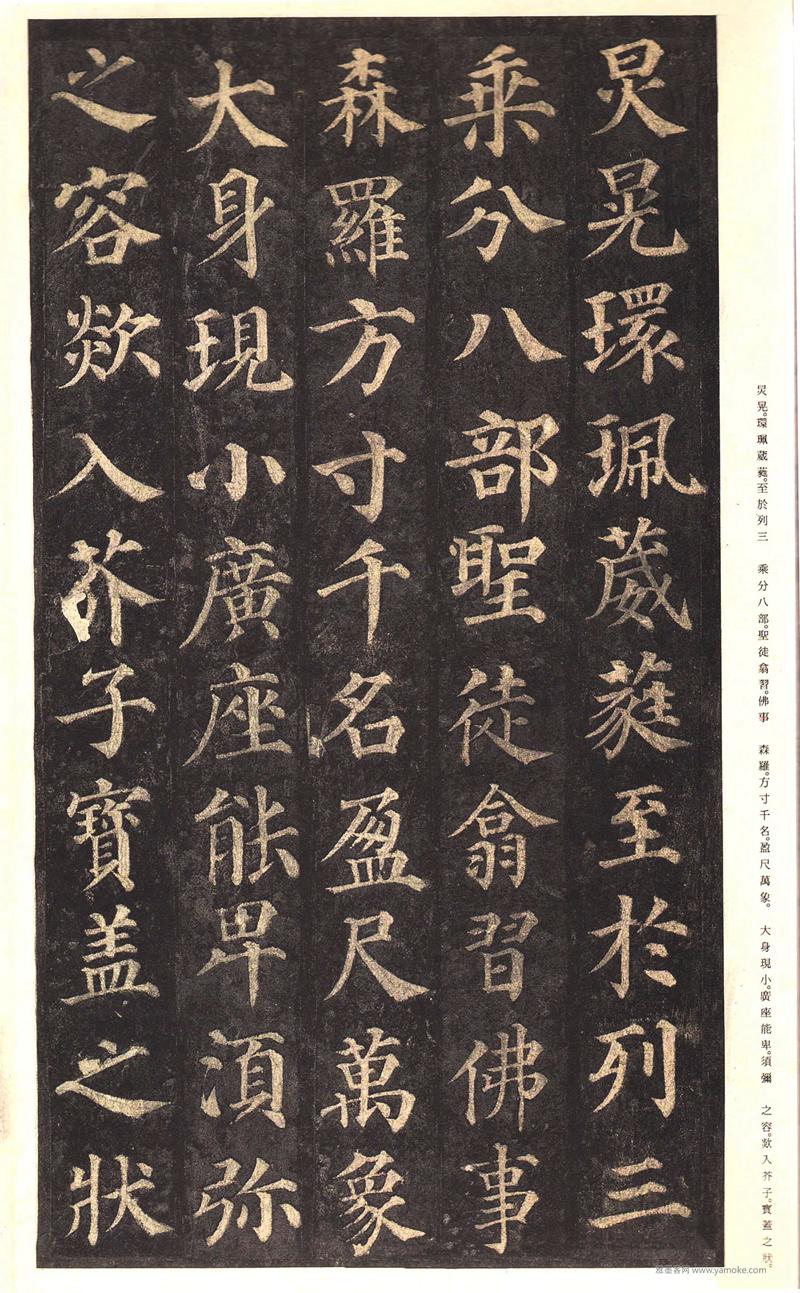 炅晃環珮葳蕤至於列三
乘分八部聖徒翕習佛事
森羅方寸千名盈尺萬象
大身現小廣座能卑須弥
之容欻入芥子寶盖之狀
炅晃。環珮葳蕤。至於列三　乘分八部。聖徒翕習。佛事　森羅。方寸千名。盈尺萬象。　大身現小。廣座能卑。須彌　之容。欻入芥子。寶蓋之狀。
雅墨客网 www.yamoke.com